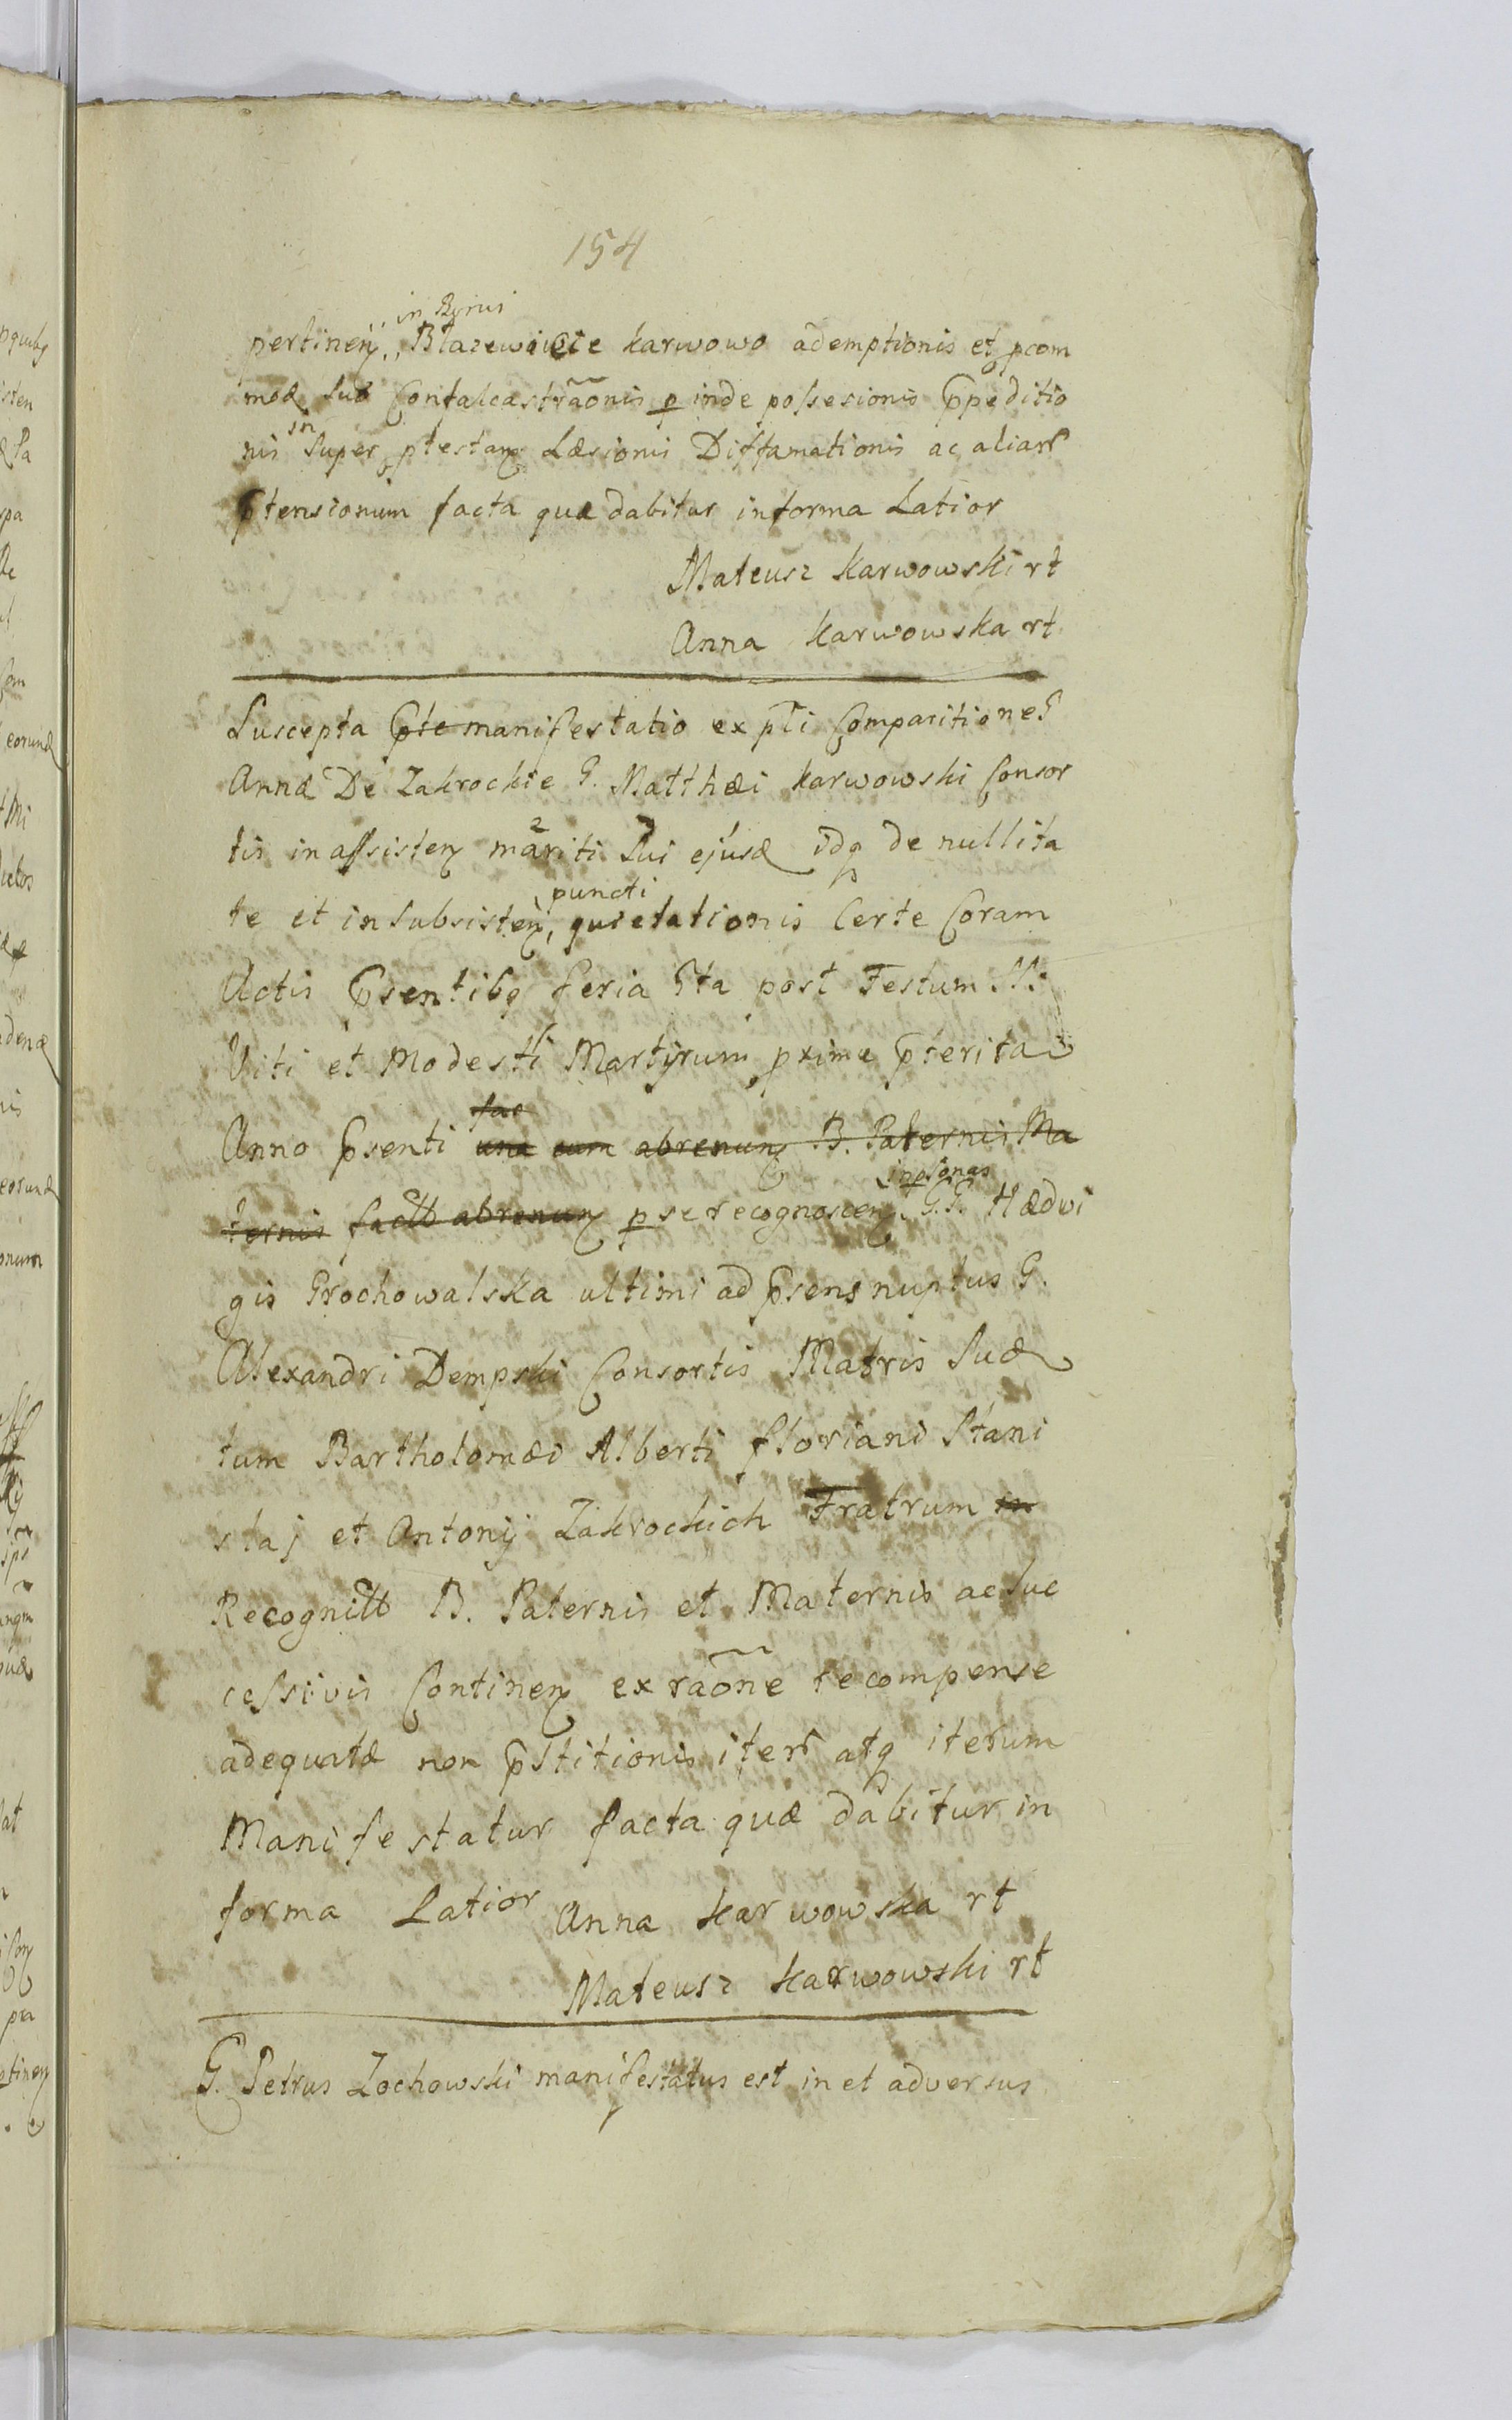 154
in Bonis
pertinen, Błazewięcie Karwowo ademptionis et pcom
mod Sub Confalcastraõnis p inde possesionis Expeditio
nis in Super ptestan Læsionis Diffamationis ac aliarr
Ptensionum facta quæ dabitur in forma Latior
Mateusz Karwowski rt
Anna Karwowska rt
Suscepta Pte manifestatio ex pti Comparitione G
Annæ De Zakrockie G. Matthæi Karwowski Consor
tis in assisten mariti Sui ejusd idq de nullita
puncti
te et in Subsisten, quietationis Certe Coram
Actis Psentibq feria 5ta post Festum SS:
Viti et Modesti Martyrum pxime Pterita
fac
Anno Psenti una cum abrenun B. Paternis Ma
in psonas
ternis factt abrenun p se recognoscen G.G. Hædvi
gis Grochowalska ultimi ad Psens nuptus G.
Alexandri Dempski Consortis Matris Suæ
tum Bartholomæi Alberti floriani Stani
slaj et Antonij Zakrockich Fratrum in
Recognitt B. Paternis et Maternis ac Suc
cessivis Continen ex raõne recompense
adequatæ non Pstitionis iterr atq iterum
Manifestatur facta quæ dabitur in
forma Latior Anna Karwowska rt
Mateusz Karwowski rt
G. Petrus Zochowski manifestatus est in et adversus